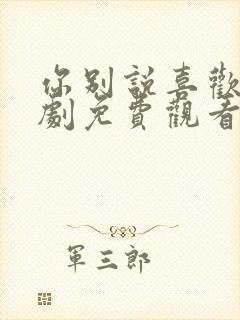 你別説喜歡
劇免費觀看
軍三郎